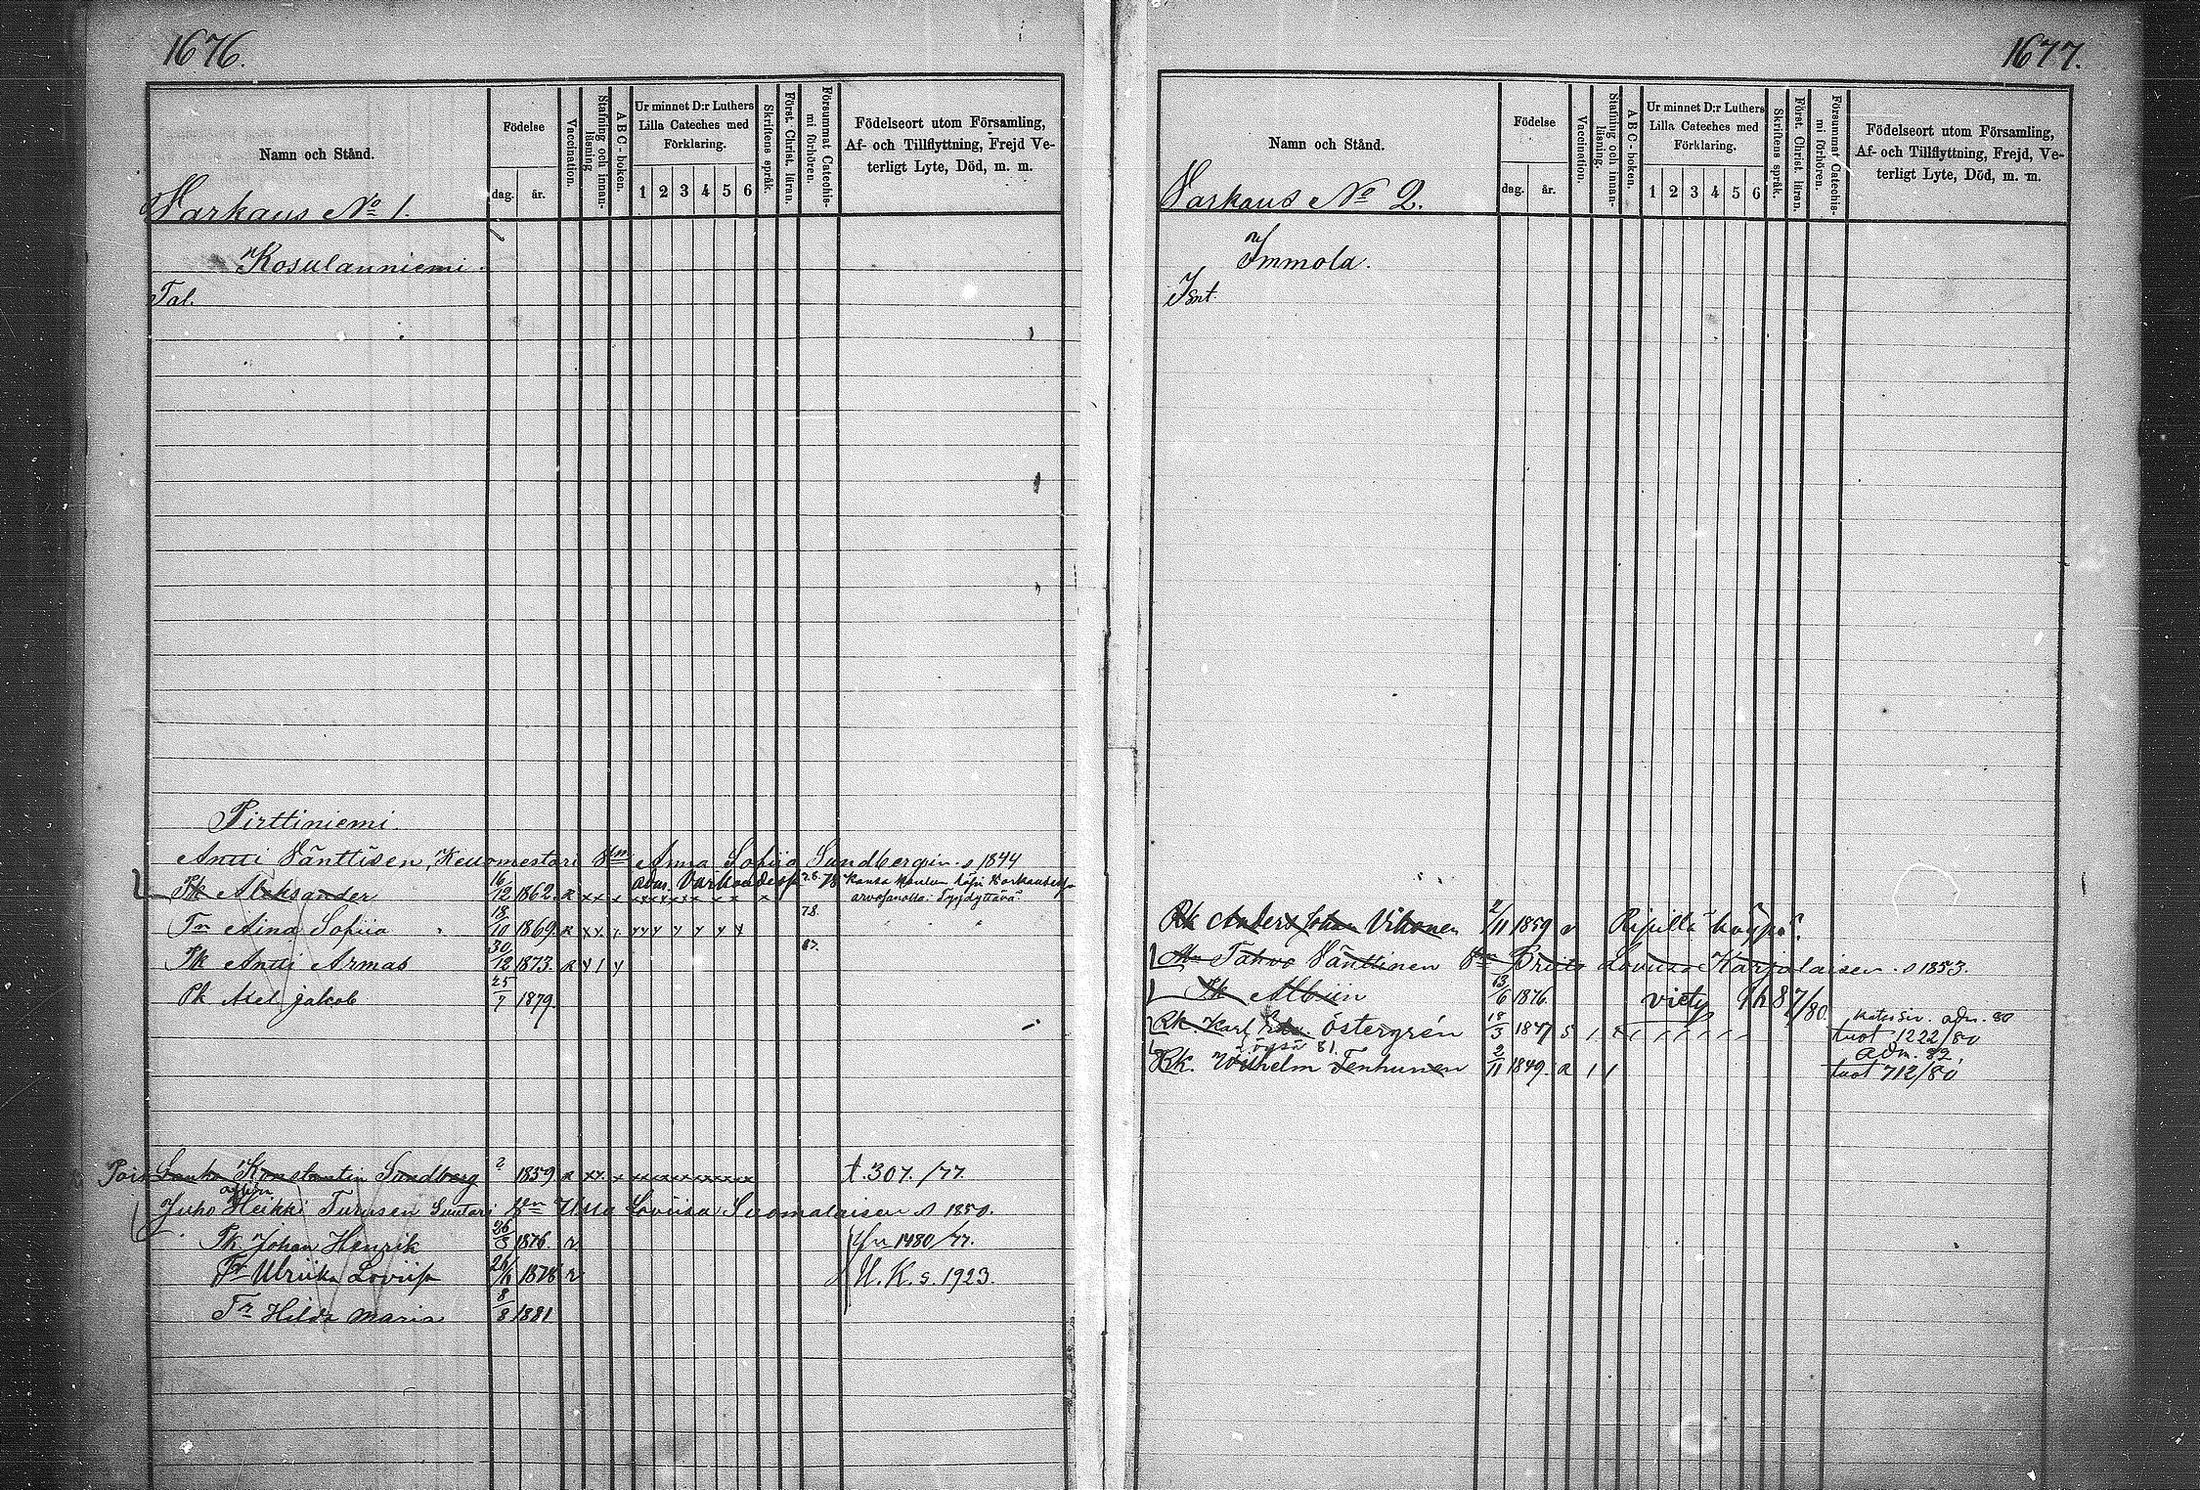 1676.
Namn och Stånd.
Födelse
dag.
år.
Vaccination.
Stafning och innan-
läsning
A B C - boken.
Ur minnet D:r Luthers
Lilla Cateches med
Förklaring.
1 2 3 4 5 6
Skriftens språk.
Först. Christ. läran.
Försummat Catechis-
mi förhören.
Födelseort utom Församling,
Af- och Tillflyttning, Frejd Ve-
terligt Lyte, Död, m. m.
Varkaus No 1.
Kosulanniemi.
Tal.
Pirttiniemi.
Antti Vänttisen, Anna Sofiia Sundbergin s 1844
Pk Aleksander 16/12 1862. R xx x adm. 78
arvosanalla: Tyydyttävä
Tr Aina Sofiia 18/10 1869. R 78.
Pk Antti Armas 30/12 1873. R 87.
Pk Axel Jakob 25/7 1879.
Konstantin Sundberg ? 1859 R xx. x t. 307./77.
Juho Heikki Turusen Suutari Loviisa Suomalaisen s 1850.
Pk Johan Henrik 1876. r 1480/77.
Tr Ulriika Loviisa 1878 r U. K. s. 1923.
Tr Hilda Maria 8/8 1881
1677.
Namn och Stånd.
Födelse
dag.
år.
Vaccination.
Stafning och innan-
läsning.
A B C - boken.
Ur minnet D:r Luthers
Lilla Cateches med
Förklaring.
1 2 3 4 5 6
Skriftens språk.
Först. Christ. läran.
Försummat Catechis-
mi förhören.
Födelseort utom Församling,
Af- och Tillflyttning, Frejd, Ve-
terligt Lyte, Död, m. m.
Varkaus No 2.
Immola.
Isnt.
Rk Anders Johan Vihonen 2/11 1859 r Ripillä käypä?
Tahvo Vänttinen Loviisa Karjalaisen s 1853.
Pk Albiin 13/6 1876. 87/80.
adm. 80
Rk Karl Edv. Östergrén 18/3 1847 s tuot 1222/80
81. adm. 82,
Rk. Wilhelm Tenhunen 2/11 1849. R 1 1 tuot 712/80